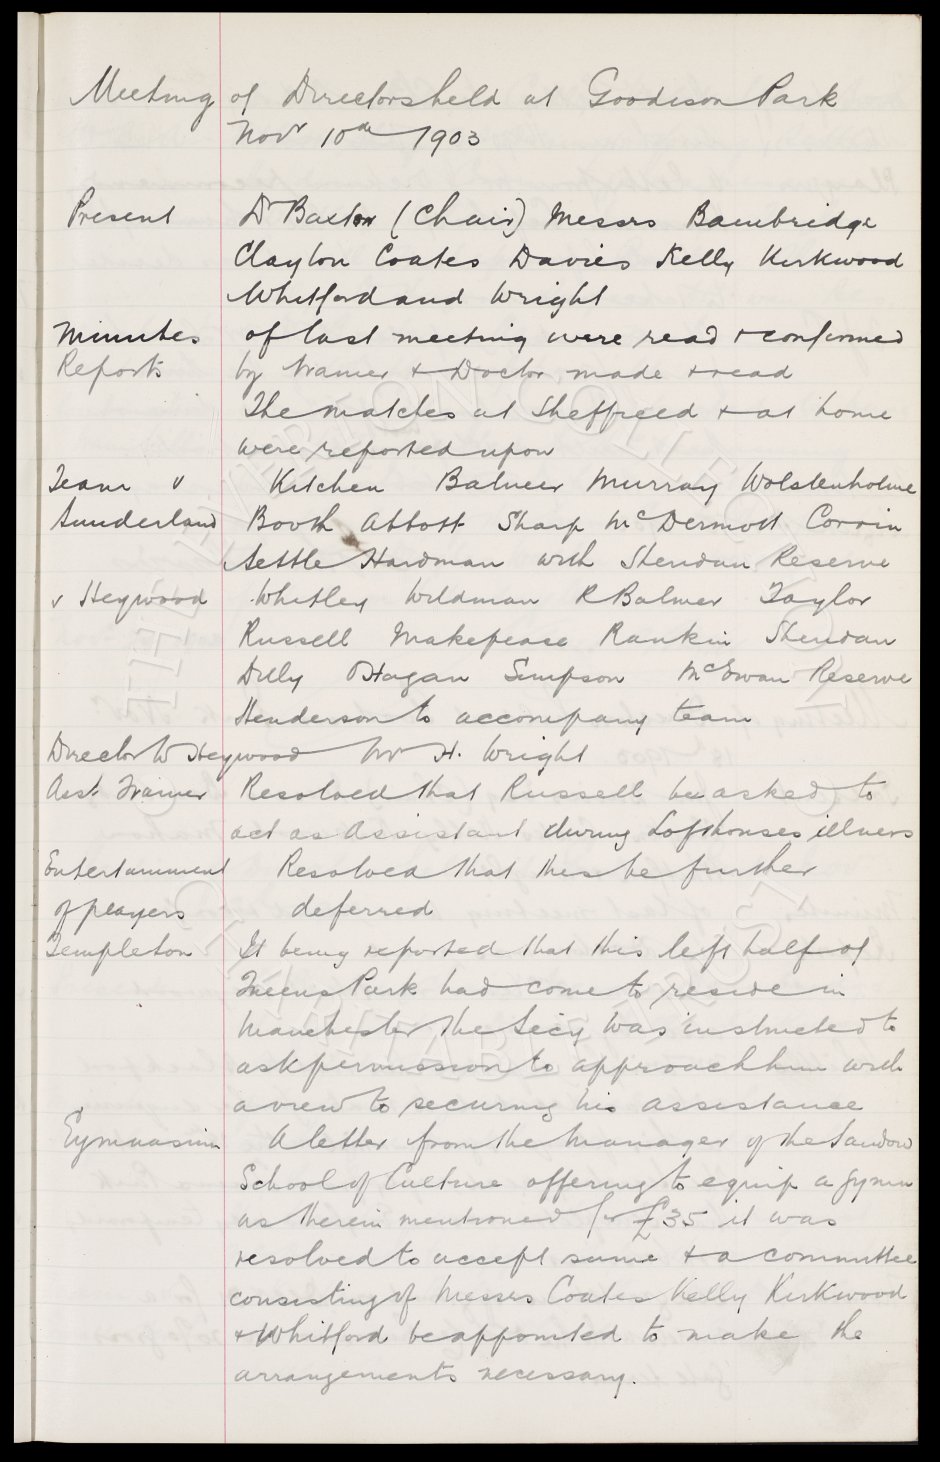 Meeting of Directors held at Goodison Park
Novr 10th 1903
Present Dr Baxter (Chair) Messrs Bainbridge
Clayton Coates Davies Kelly Kirkwood
Whitford and Wright
Minutes of last meeting were read & confirmed
Reports by Trainer & Doctor made & read
The matches at Sheffield & at home
were reported upon
Team v Kitchen Balmer Murray Wolstenholme
Sunderland Booth Abbott Sharp McDermott Corrin
Settle Hardman with Sheridan Reserve
v Heywood Whitley Wildman R Balmer Taylor
Russell Makepeace Rankin Sheridan
Dilly OHagan Simpson McEwan Reserve
Henderson to accompany team
Director to Heywood Mr H. Wright
Asst Trainer Resolved that Russell be asked to
act as Assistant during Lofthouses illness
Entertainment Resolved that this be further
of players deferred
Templeton It being reported that this left half of
Queens Park had come to reside in
Manchester the Secy was instructed to
ask permission to approach him with
a view to securing his assistance
Gymnasium A letter from the Manager of the Sandow
School of Culture offering to equip a gymn
as therein mentioned for £35 it was
resolved to accept same & a committee
consisting of Messrs Coates Kelly Kirkwood
& Whitford be appointed to make the
arrangements necessary.
EVERTON COLLECTION
THE
CHARITABLE TRUST